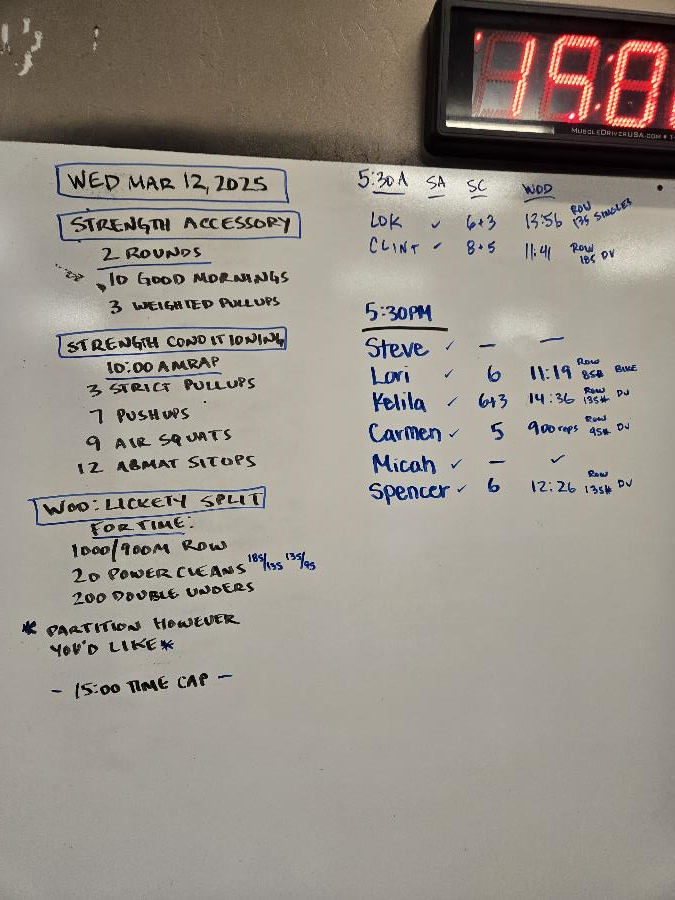 15:0
MUSCLEDRIVERUSA.COM
WED MAR 12, 2025
STRENGTH ACCESSORY
2 ROUNDS
10 GOOD MORNINGS
3 WEIGHTED PULLUPS
STRENGTH CONDITIONING
10:00 AMRAP
3 STRICT PULLUPS
7 PUSHUPS
9 AIR SQUATS
12 ABMAT SITUPS
WOD: LICKETY SPLIT
FOR TIME:
1000/900M ROW
20 POWER CLEANS 185/135 135/95
200 DOUBLE UNDERS
* PARTITION HOWEVER
YOU'D LIKE *
- 15:00 TIME CAP -
5:30A SA SC WOD
LOK ✓ 6+3 13:56 ROW 135 SINGLES
CLINT ✓ 8+5 11:41 ROW 185 DU
5:30PM
Steve ✓ — —
Lori ✓ 6 11:19 Row 85# BIKE
Kelila ✓ 6+3 14:36 Row 135# DU
Carmen ✓ 5 900 reps Row 45# DU
Micah ✓ — ✓
Spencer ✓ 6 12:26 Row 135# DU